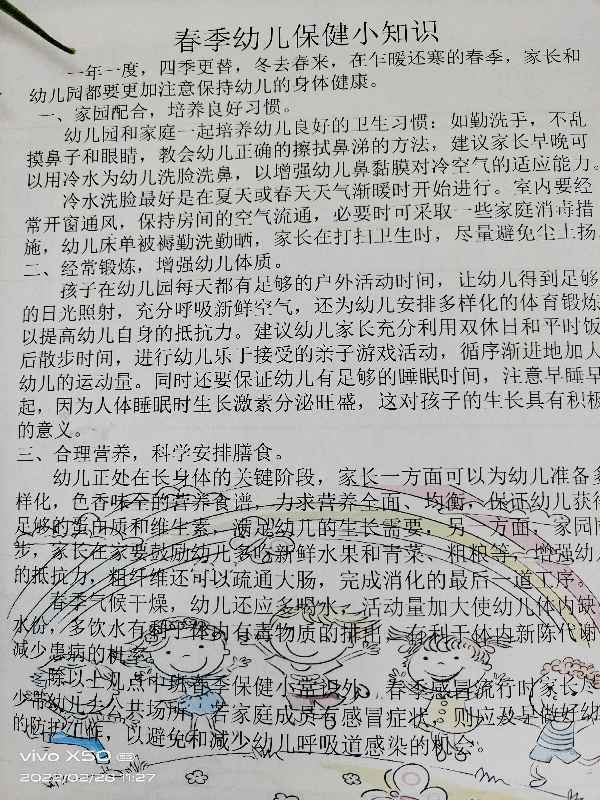 春季幼儿保健小知识
一年一度，四季更替，冬去春来，在乍暖还寒的春季，家长和
幼儿园都要更加注意保持幼儿的身体健康。
一、家园配合，培养良好习惯。
幼儿园和家庭一起培养幼儿良好的卫生习惯：如勤洗手，不乱
摸鼻子和眼睛，教会幼儿正确的擦拭鼻涕的方法，建议家长早晚可
以用冷水为幼儿洗脸洗鼻，以增强幼儿鼻黏膜对冷空气的适应能力。
冷水洗脸最好是在夏天或春天天气渐暖时开始进行。室内要经
常开窗通风，保持房间的空气流通，必要时可采取一些家庭消毒措
施，幼儿床单被褥勤洗勤晒，家长在打扫卫生时，尽量避免尘土扬
二、经常锻炼，增强幼儿体质。
孩子在幼儿园每天都有足够的户外活动时间，让幼儿得到足够
的日光照射，充分呼吸新鲜空气，还为幼儿安排多样化的体育锻炼
以提高幼儿自身的抵抗力。建议幼儿家长充分利用双休日和平时饭
后散步时间，进行幼儿乐于接受的亲子游戏活动，循序渐进地加大
幼儿的运动量。同时还要保证幼儿有足够的睡眠时间，注意早睡早
起，因为人体睡眠时生长激素分泌旺盛，这对孩子的生长具有积极
的意义。
三、合理营养，科学安排膳食。
幼儿正处在长身体的关键阶段，家长一方面可以为幼儿准备多
样化，色香味全的营养食谱，力求营养全面、均衡，保证幼儿获得
足够的蛋白质和维生素，满足幼儿的生长需要，另一方面，家园同
步，家长在家要鼓励幼儿多吃新鲜水果和青菜、粗粮等，增强幼儿
的抵抗力，粗纤维还可以疏通大肠，完成消化的最后一道工序。
春季气候干燥，幼儿还应多喝水，活动量加大使幼儿体内缺
水份，多饮水有利于体内有毒物质的排出，有利于体内新陈代谢
减少患病的机率。
除以上几点中班春季保健小常识外，春季感冒流行时家长
少带幼儿去公共场所，若家庭成员有感冒症状，则应及早做好幼
的防护工作，以避免和减少幼儿呼吸道感染的机会。
vivo X50
2022/02/28 11:27